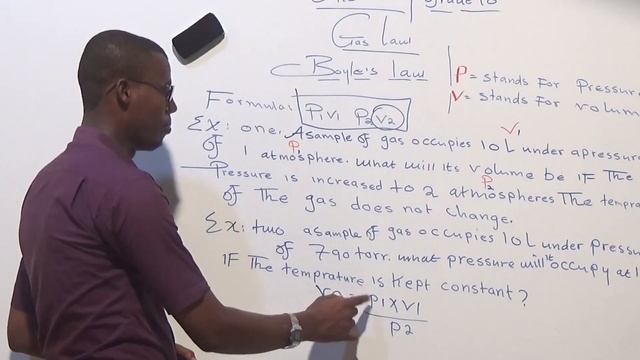 grade 10
Gas Law
Boyle's Law
P = stands For Pressure
V = stands For volum
Formula: P1V1 P2V2
V1
EX: one. A sample of gas occupies 10 L under a pressure
P1
of 1 atmosphere. what will its volume be IF The
P2
Pressure is increased to 2 atmospheres The tempra
of The gas does not change.
EX: two a sample of gas occupies 10 L under pressu
of 790 torr. what pressure will it occupy at 1
IF The temprature is kept constant?
P1XV1
P2